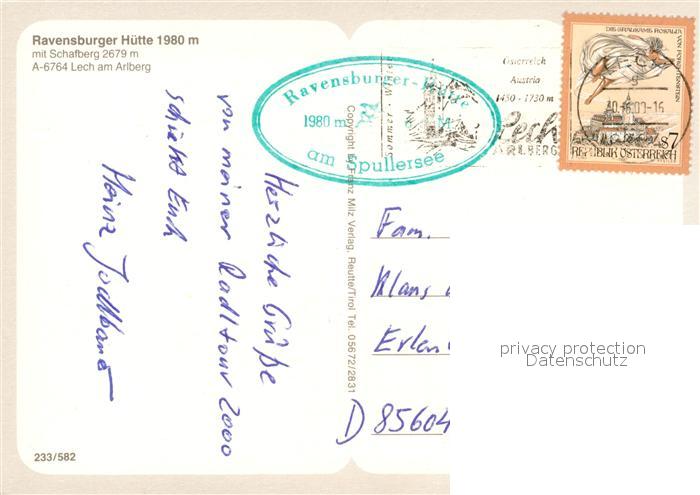 Ravensburger Hütte 1980 m
mit Schafberg 2679 m
A-6764 Lech am Arlberg
Herzliche Grüße
von meiner Radltour 2000
schickt Euch
Heinz
233/582
Ravensburger-Hütte
1980 m
am Spullersee
Sommer
Winter
Österreich
Austria
1450 - 1730 m
Lech
ARLBERG
DIE GRAUSAME ROSALIA
VON FORCHTENSTEIN
S7
REPUBLIK ÖSTERREICH
Copyright by Franz Milz Verlag, Reutte/Tirol Tel. 05672/2831
Fam.
Klaus
Erlen
D 85604
privacy protection
Datenschutz